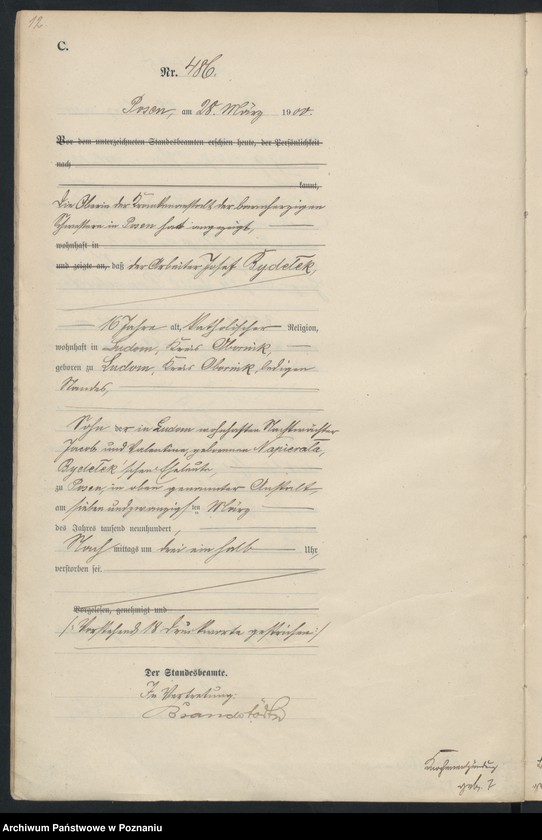 12
C.
Nr. 486.
Posen, am 28. März 1900.
Vor dem unterzeichneten Standesbeamten erschien heute, der Persönlichkeit
nach
kannt,
Die Oberin der Krankenanstalt der barmherzigen
Schwestern in Posen hat angezeigt,
wohnhaft in
und zeigte an, daß der Arbeiter Josef Rydełek,
16 Jahre alt, katholischer Religion,
wohnhaft in Ludom, Kreis Obornik,
geboren zu Ludom, Kreis Obornik, ledigen
Standes,
Sohn der in Ludom wohnhaften Nachtwächter
Jacob und Valentine, geborenen Napierała,
Rydełek'schen Eheleute
zu Posen, in oben genannter Anstalt,
am sieben und zwanzigsten März
des Jahres tausend neunhundert,
Nach mittags um drei ein halb Uhr,
verstorben sei.
Vorgelesen, genehmigt und
/: Vorstehend 18 Druckworte gestrichen :/
Der Standesbeamte.
In Vertretung:
Archiwum Państwowe w Poznaniu